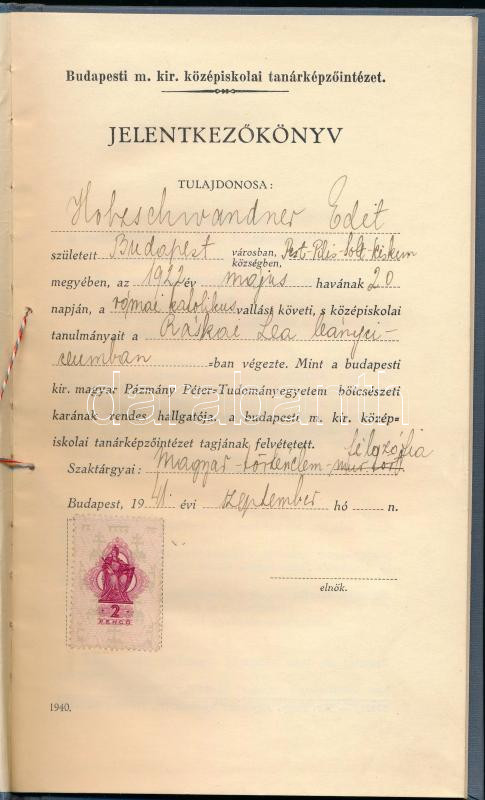 Budapesti m. kir. középiskolai tanárképzőintézet.
JELENTKEZŐKÖNYV
TULAJDONOSA:
Hobeschwandner Edit
született Budapest városban, községben, Pest-Pilis-Solt-Kiskun
megyében, az 1922 év május havának 20
napján, a római katolikus vallást követi, s középiskolai
tanulmányait a Ráskai Lea leánylí-
ceumban =ban végezte. Mint a budapesti
kir. magyar Pázmány Péter-Tudományegyetem bölcsészeti
karának rendes hallgatója, a budapesti m. kir. közép=
iskolai tanárképzőintézet tagjának felvétetett.
filozófia
Szaktárgyai: Magyar-történelem-
Budapest, 1941. évi szeptember hó n.
2
PENGŐ
elnök.
1940.
darabanth